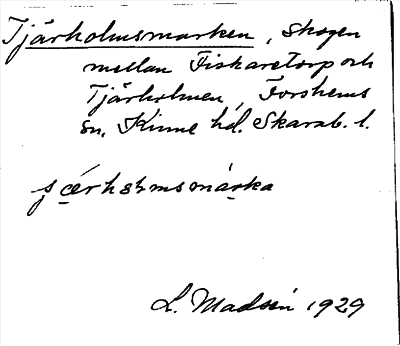 Tjärholmsmarken, Skogen
mellan Fiskaretorp och
Tjärholmen, Forshems
sn, Kinne hd. Skarab. l.
L. Madsén 1929